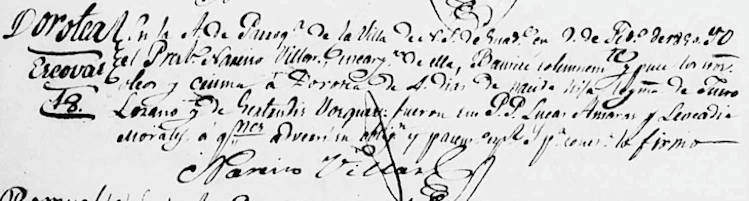 Dorotea En la S. Parroq.l de la Villa de N. S. de Guad.e en 9. de Feb.o de 1830. Yo
el Presb.o Narciso Villar, Encarg.do de ella, Bauticé solemnem.te y puse los
oleos y crisma à Dorotea de 4. dias de nacida hija legma de
Lozano, y de Gertrudis Vasquez: fueron sus P.P. Lucas Amaras y Leocadia
Morales à q.nes advertí su oblig.n y parent. espl. y p.a cons.a lo firmo
Narciso Villar
18.